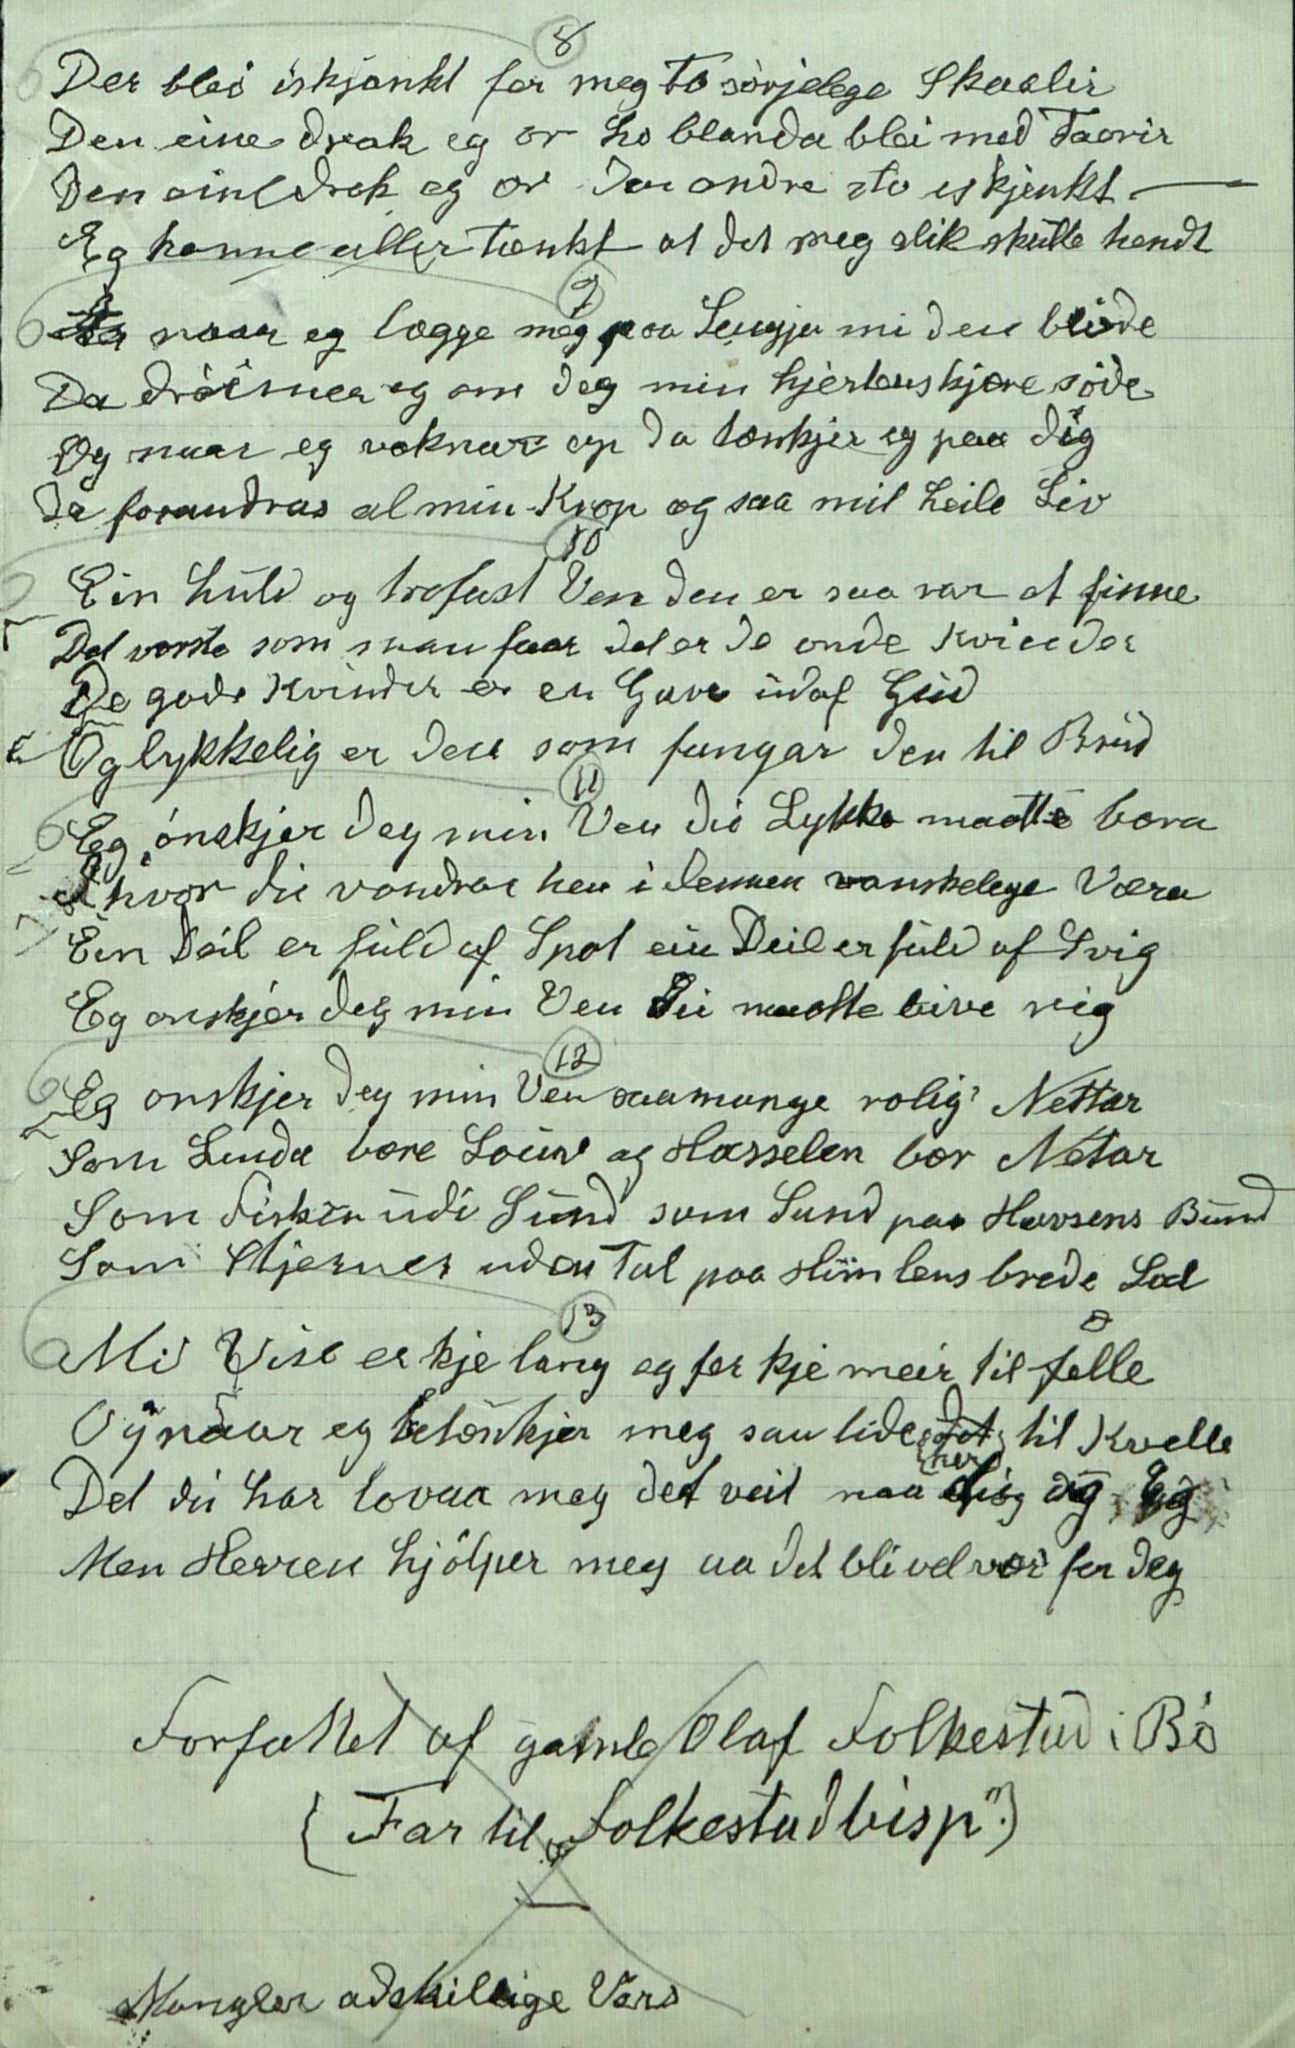 8
Der blei iskjænkt for meg to sørjelege Skaalir
Den eine drak eg or ho blanda blei med Taarir
Den eine drak eg or den andre sto iskjenkt
Eg hanne aller tænkt at det meg slik skulle hendt
9
naar eg lægge meg paa Sengja mi den bløde
Da drøimer eg om deg min hjertenskjære søde
Og naar eg vaknar op da tænkjer eg paa dig
Da forandras al min Krop og saa mit heile Liv
10
Ein huld og trofast Ven den er saa rar at finne
Det værste som man faar det er de onde Kvinder
De gode Kvinder er en Gave udaf Gud
Og lykkelig er den som fangar den til Brud
11
Eg ønskjer deg min Ven du Lykke maatte bæra
I hvor du vandrar hen i denne vanskelege Væra
Ein Deil er fuld af Spot ein Deil er fuld af Svig
Eg ønskjer deg min Ven du maatte bive rig
12
Eg ønskjer deg min Ven saa mange rolig' Nettar
Som Linda bære Lauv og Hasselen bær Netar
Som Fisken udi Sund som Sand paa Havsens Bund
Som Stjerner uden Tal paa Himlens brede Sal
13
Mi Vise er kje lang eg fer kje meir til følle
Og naar eg betænkjer meg saa lide det til Kvelle
Det du har lovaa meg det veit naa her og Eg
Men Herren hjølper meg aa det bli vel vær for deg
Forfattet af gamle Olaf Folkestad i Bø
(Far til „Folkestadbisp")
Mangler adskillige Værs